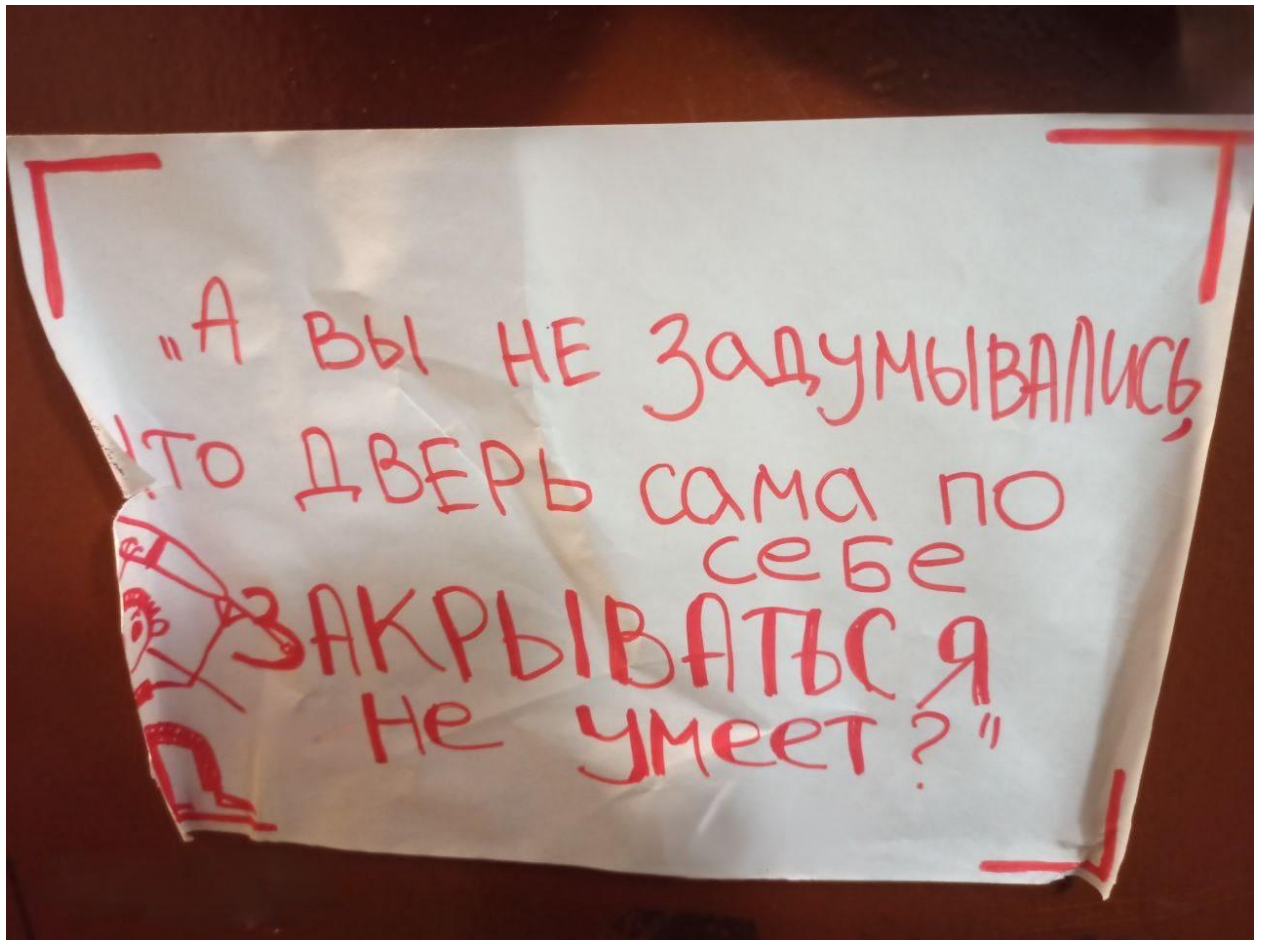 "А ВЫ НЕ ЗАДУМЫВАЛИСЬ,
ЧТО ДВЕРЬ САМА ПО
СЕБЕ
ЗАКРЫВАТЬСЯ
НЕ УМЕЕТ?"